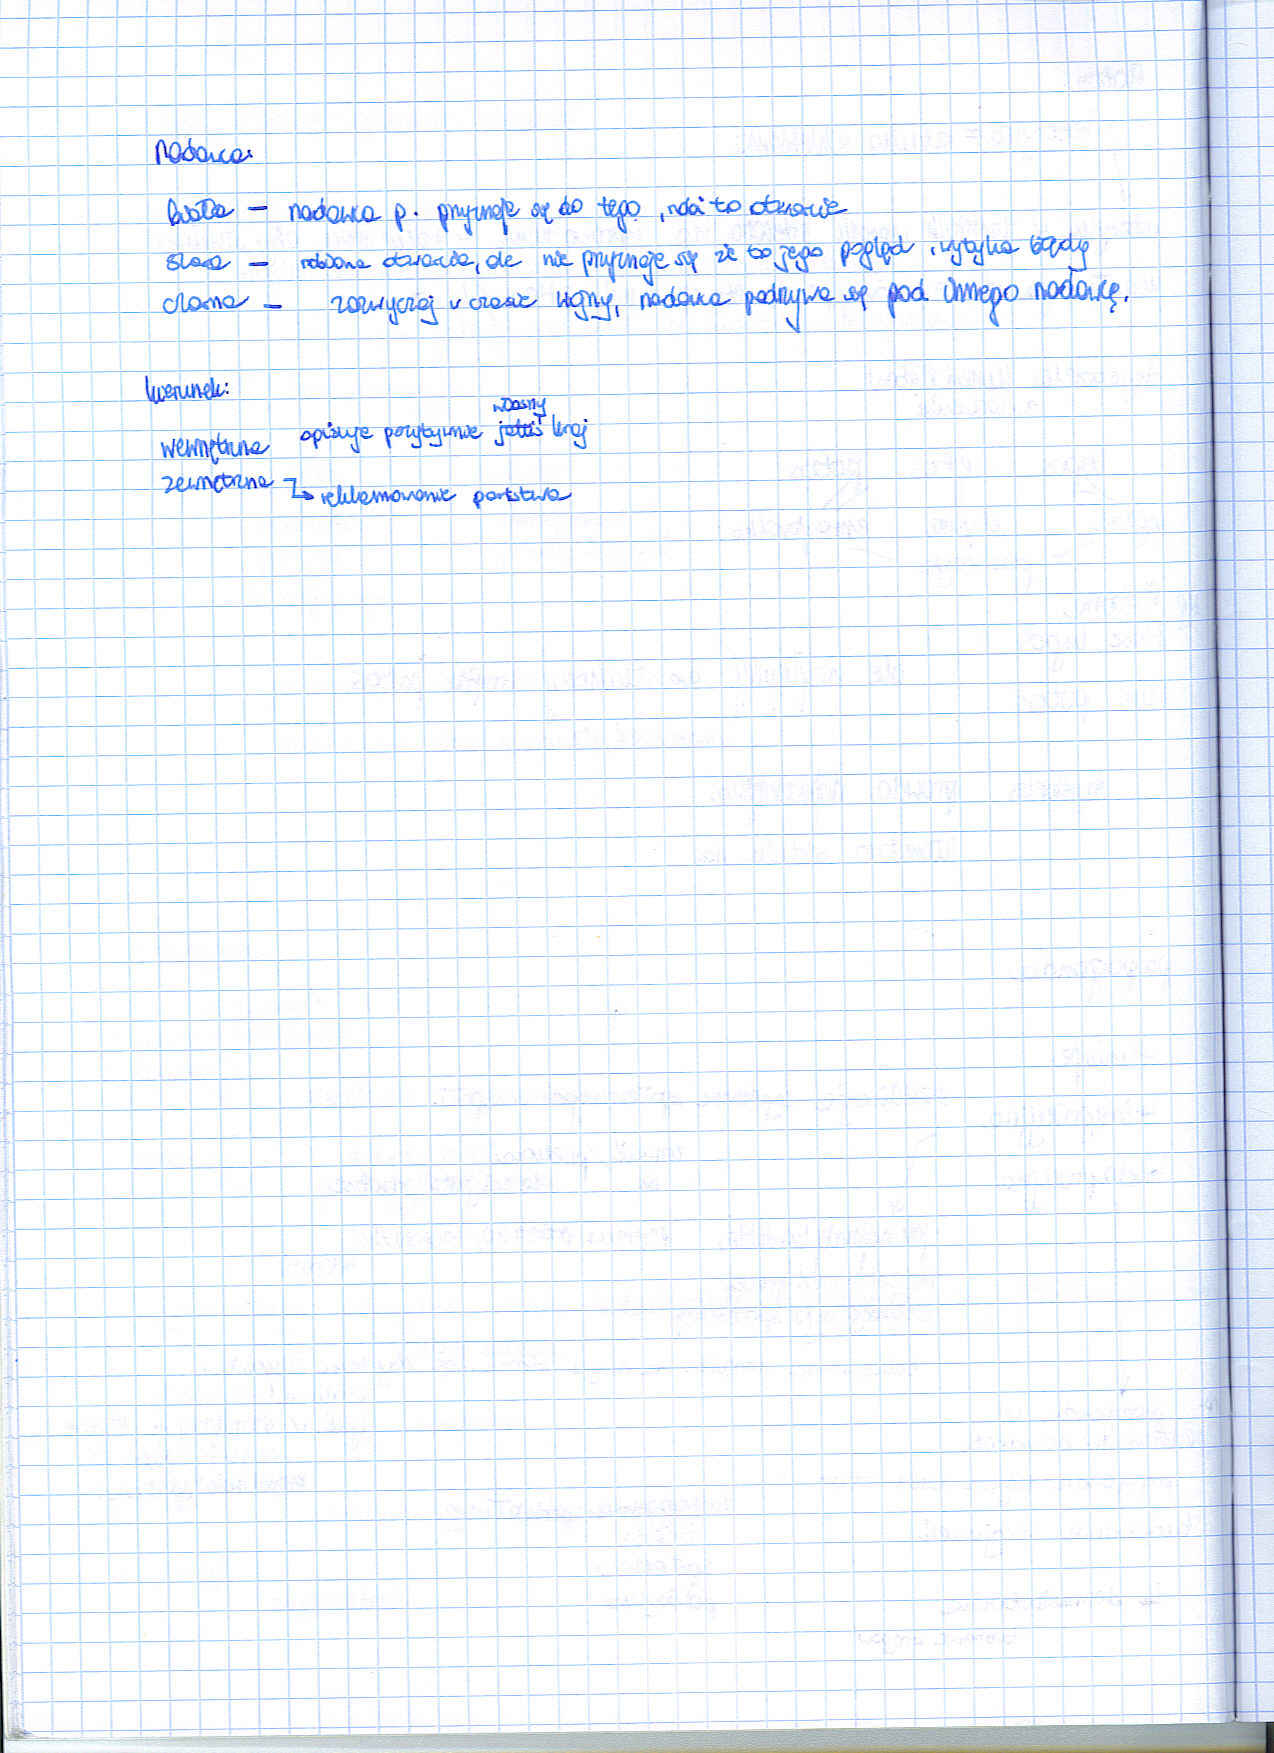 Nadawca:
biała – nadawca p. przyznaje się do tego, robi to otwarcie
szara – robiona otwarcie, ale nie przyznaje się że to jego pogląd, wytyka błędy
czarna – zazwyczaj w czasie wojny, nadawca podszywa się pod innego nadawcę.
kierunek:
własny
wewnętrzna opisuje pozytywnie jakiś kraj
zewnętrzna ↳ reklamowanie państwa